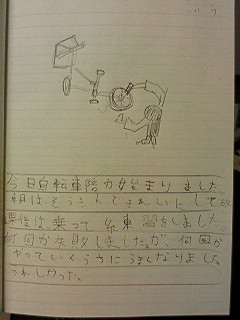 今日自転車隊が始まりました。
朝はそうこんできれいにして放
課後は乗って糸東習をしました。
何回か失敗しましたが、何回か
やっていくうちにうまくなりました。
うれしかった。